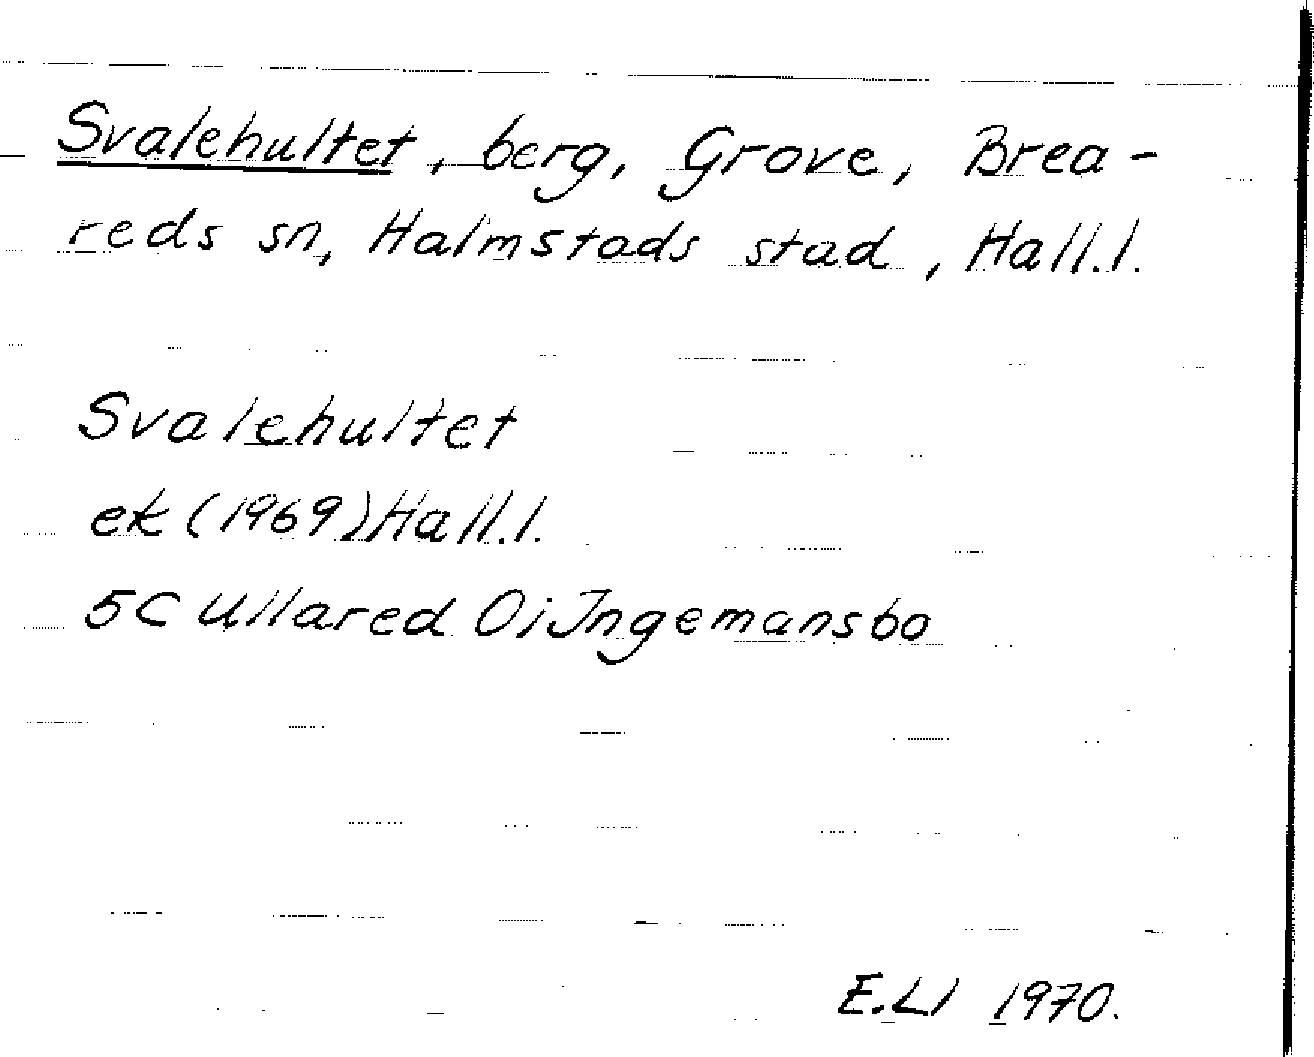 Svalehultet, berg, Grove, Brea-
reds sn, Halmstads stad, Hall.l.
Svalehultet
ek (1969) Hall.l.
5C Ullared 0i Ingemansbo
E.LI 1970.